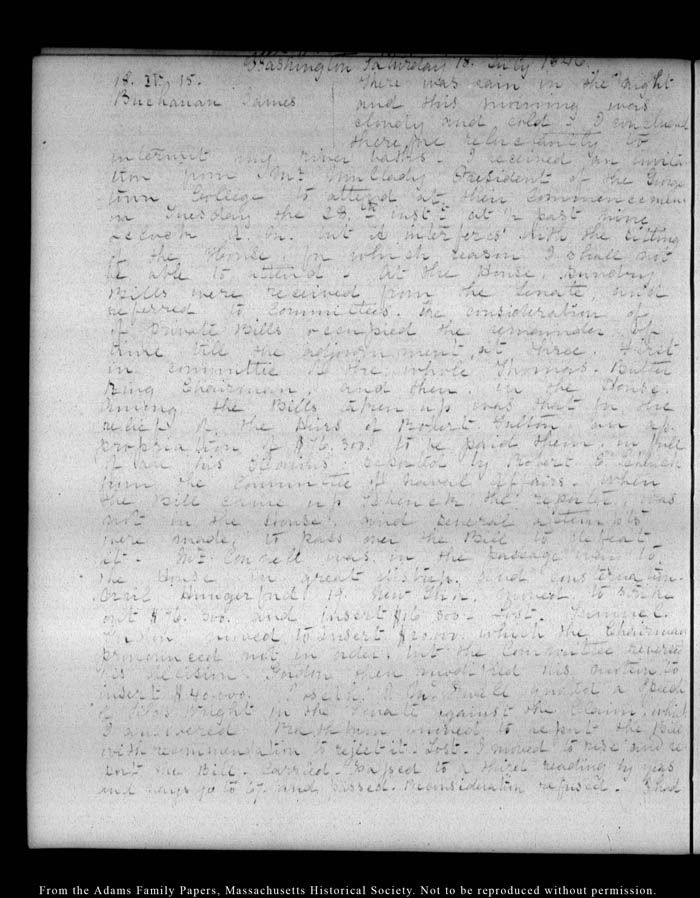 Washington Saturday 18. July 1846.
18. IV. 15. There was rain in the night
Buchanan James and this morning was
cloudy and cold. I concluded
therefore reluctantly to
intermit my river baths. I received an invita
tion from Mr President of the George
town College to attend at their Commencement
on Tuesday the 28.th inst.t at 1/2 past nine
O'Clock A.M. but it interferes with the sitting
of the House, for which reason I shall not
be able to attend. At the House, Sundry
Bills were received from the Senate, and
referred to Committees. The consideration of
of private Bills occupied the remainder of
time till the adjournment at three. First
in committee of the whole Thomas Butler
King Chairman, and then in the House.
Among the Bills taken up was that for the
relief of the Heirs of Robert Fulton, an ap
propriation of $76.300. to be paid them, in full
of all his claims; reported by Robert C.
from the Committee of Naval Affairs. When
the Bill came up Schenck the reporter, was
not in the House, and several attempts
were made, to pass over the Bill to defeat
it. Mr was in the passage way to
the House in great distress and consternation.
Orvil Hungerford, 19. New York, moved to strike
out $76.300. and insert $16.300. Lost.
moved to insert which the Chairman
pronounced not in order, but the Committee reversed
his decision. then modified his motion to
insert $40.000. Joseph R. Ingersoll quoted a Speech
of Silas Wright in the Senate against the Claim, which
I answered. Rathbun moved to report the Bill
with recommendation to reject it. Lost. I moved to rise and re
port the Bill. Carried. Passed to a third reading by yeas
and nays 90 to 67. and passed. Reconsideration refused. I had
From the Adams Family Papers, Massachusetts Historical Society. Not to be reproduced without permission.